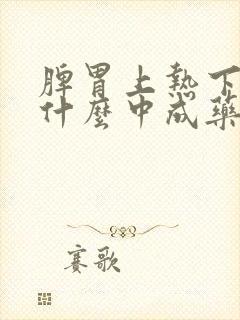 脾胃上热下
什麼中成藥
赛歌